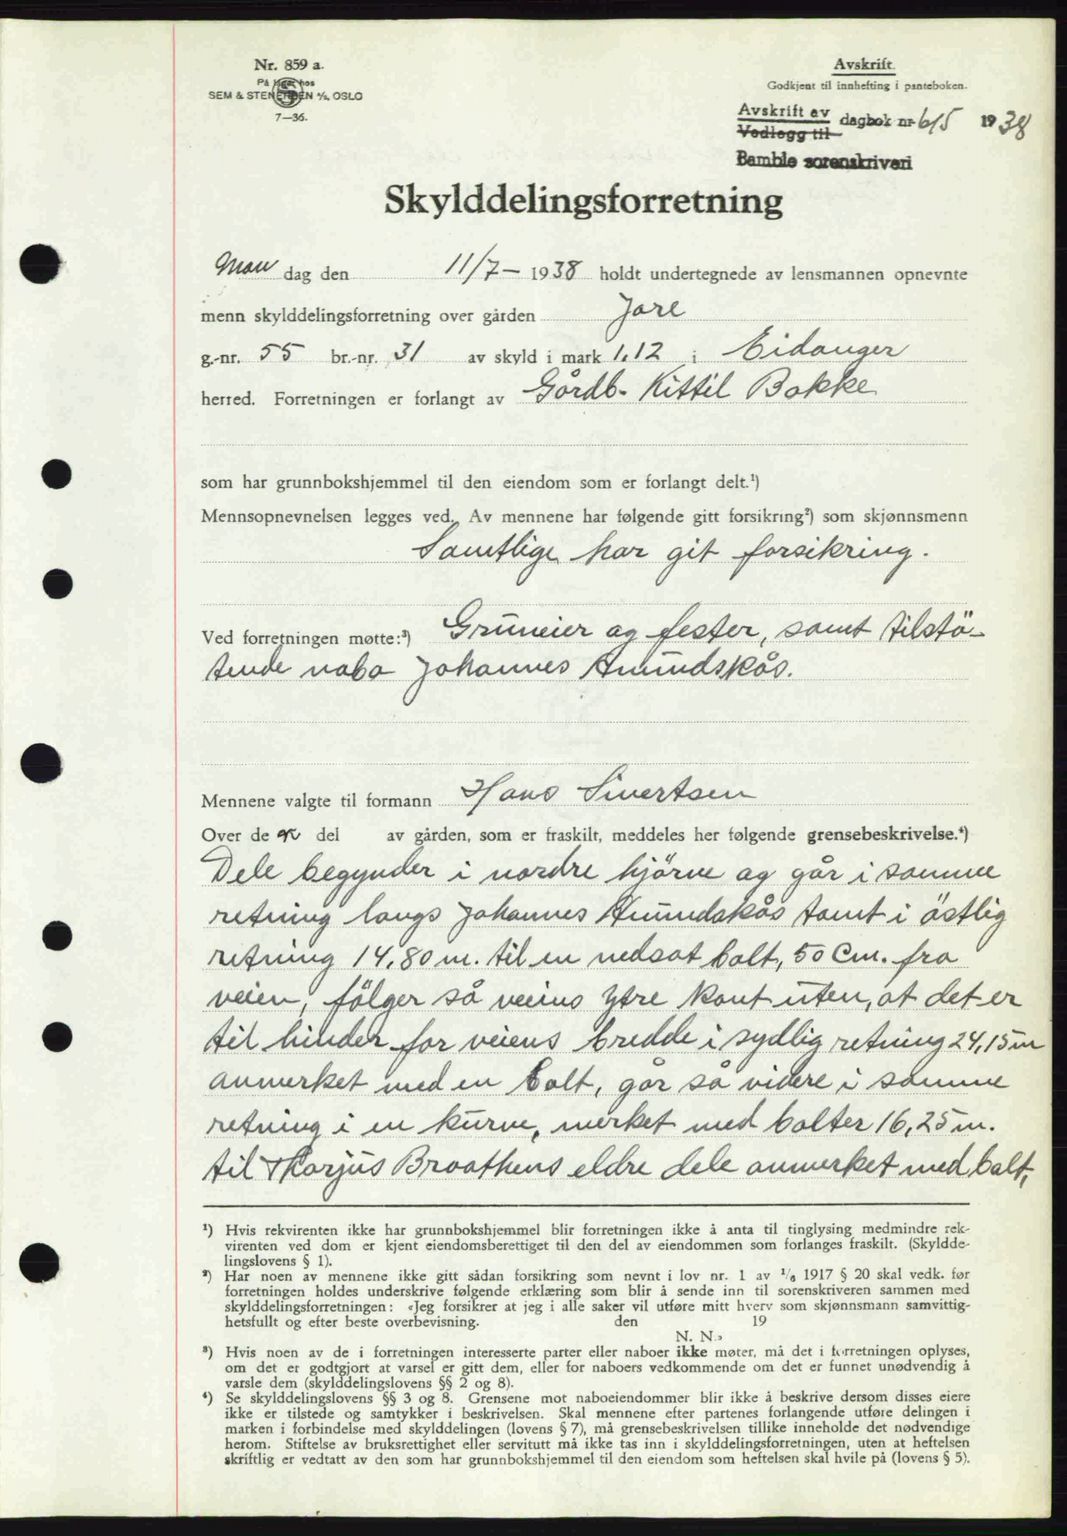 Nr. 859 a.
På lager hos
SEM & STENERSEN A/S, OSLO
7—36.
Avskrift.
Godkjent til innhefting i panteboken.
Avskrift av
Vedlegg til
dagbok nr 615 1938
Bamble sorenskriveri
Skylddelingsforretning
Man dag den 11/7 - 1938 holdt undertegnede av lensmannen opnevnte
menn skylddelingsforretning over gården Jore
g.-nr. 55 br.-nr. 31 av skyld i mark 1,12 i Eidanger
herred. Forretningen er forlangt av Gårdb. Kittil Bakke
som har grunnbokshjemmel til den eiendom som er forlangt delt.¹)
Mennsopnevnelsen legges ved. Av mennene har følgende gitt forsikring²) som skjønnsmenn
Samtlige har git forsikring.
Ved forretningen møtte:³) Gruneier og fester, samt tilstö-
tende nabo Johannes Amundskås.
Mennene valgte til formann Hans Sivertsen
Over de n del av gården, som er fraskilt, meddeles her følgende grensebeskrivelse.⁴)
Dele begynder i nordre hjörne og går i samme
retning langs Johannes Amundskås tomt i östlig
retning 14,80 m. til en nedsat bolt, 50 Cm. fra
veien, fölger så veiens ytre kant uten, at det er
til hinder for veiens bredde i sydlig retning 24,15 m
anmerket med en bolt, går så videre i samme
retning i en kurve, merket med bolter 16,25 m.
til Thorjus Braathens eldre dele anmerket med bolt,
¹) Hvis rekvirenten ikke har grunnbokshjemmel blir forretningen ikke å anta til tinglysing medmindre rek-
virenten ved dom er kjent eiendomsberettiget til den del av eiendommen som forlanges fraskilt. (Skyldde-
lingslovens § 1).
²) Har noen av mennene ikke gitt sådan forsikring som nevnt i lov nr. 1 av 1/6 1917 § 20 skal vedk. før
forretningen holdes underskrive følgende erklæring som blir å sende inn til sorenskriveren sammen med
skylddelingsforretningen: «Jeg forsikrer at jeg i alle saker vil utføre mitt hverv som skjønnsmann samvittig-
hetsfullt og efter beste overbevisning. den 19
N. N.»
³) Hvis noen av de i forretningen interesserte parter eller naboer ikke møter, må det i forretningen oplyses,
om det er godtgjort at varsel er gitt dem, eller for naboers vedkommende om det er funnet unødvendig å
varsle dem (skylddelingslovens §§ 2 og 8).
⁴) Se skylddelingslovens §§ 3 og 8. Grensene mot naboeiendommer blir ikke å beskrive dersom disses eiere
ikke er tilstede og samtykker i beskrivelsen. Skal mennene efter partenes forlangende utføre delingen i
marken i forbindelse med skylddelingen (lovens § 7), må grensebeskrivelsen tillike inneholde det nødvendige
herom. Stiftelse av bruksrettighet eller servitutt må ikke tas inn i skylddelingsforretningen, uten at heftelsen
skriftlig er vedtatt av den som har grunnbokshjemmel til den eiendom som heftelsen skal hvile på (lovens § 5).